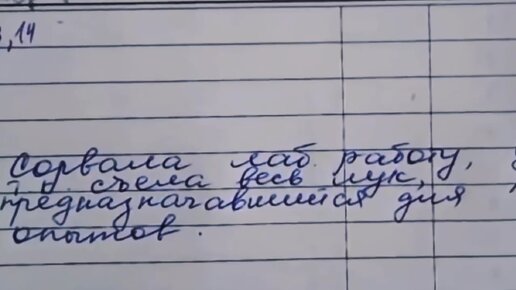 ,14
Сорвала лаб. работу,
т.к. съела весь лук,
предназначавшийся для
опытов.